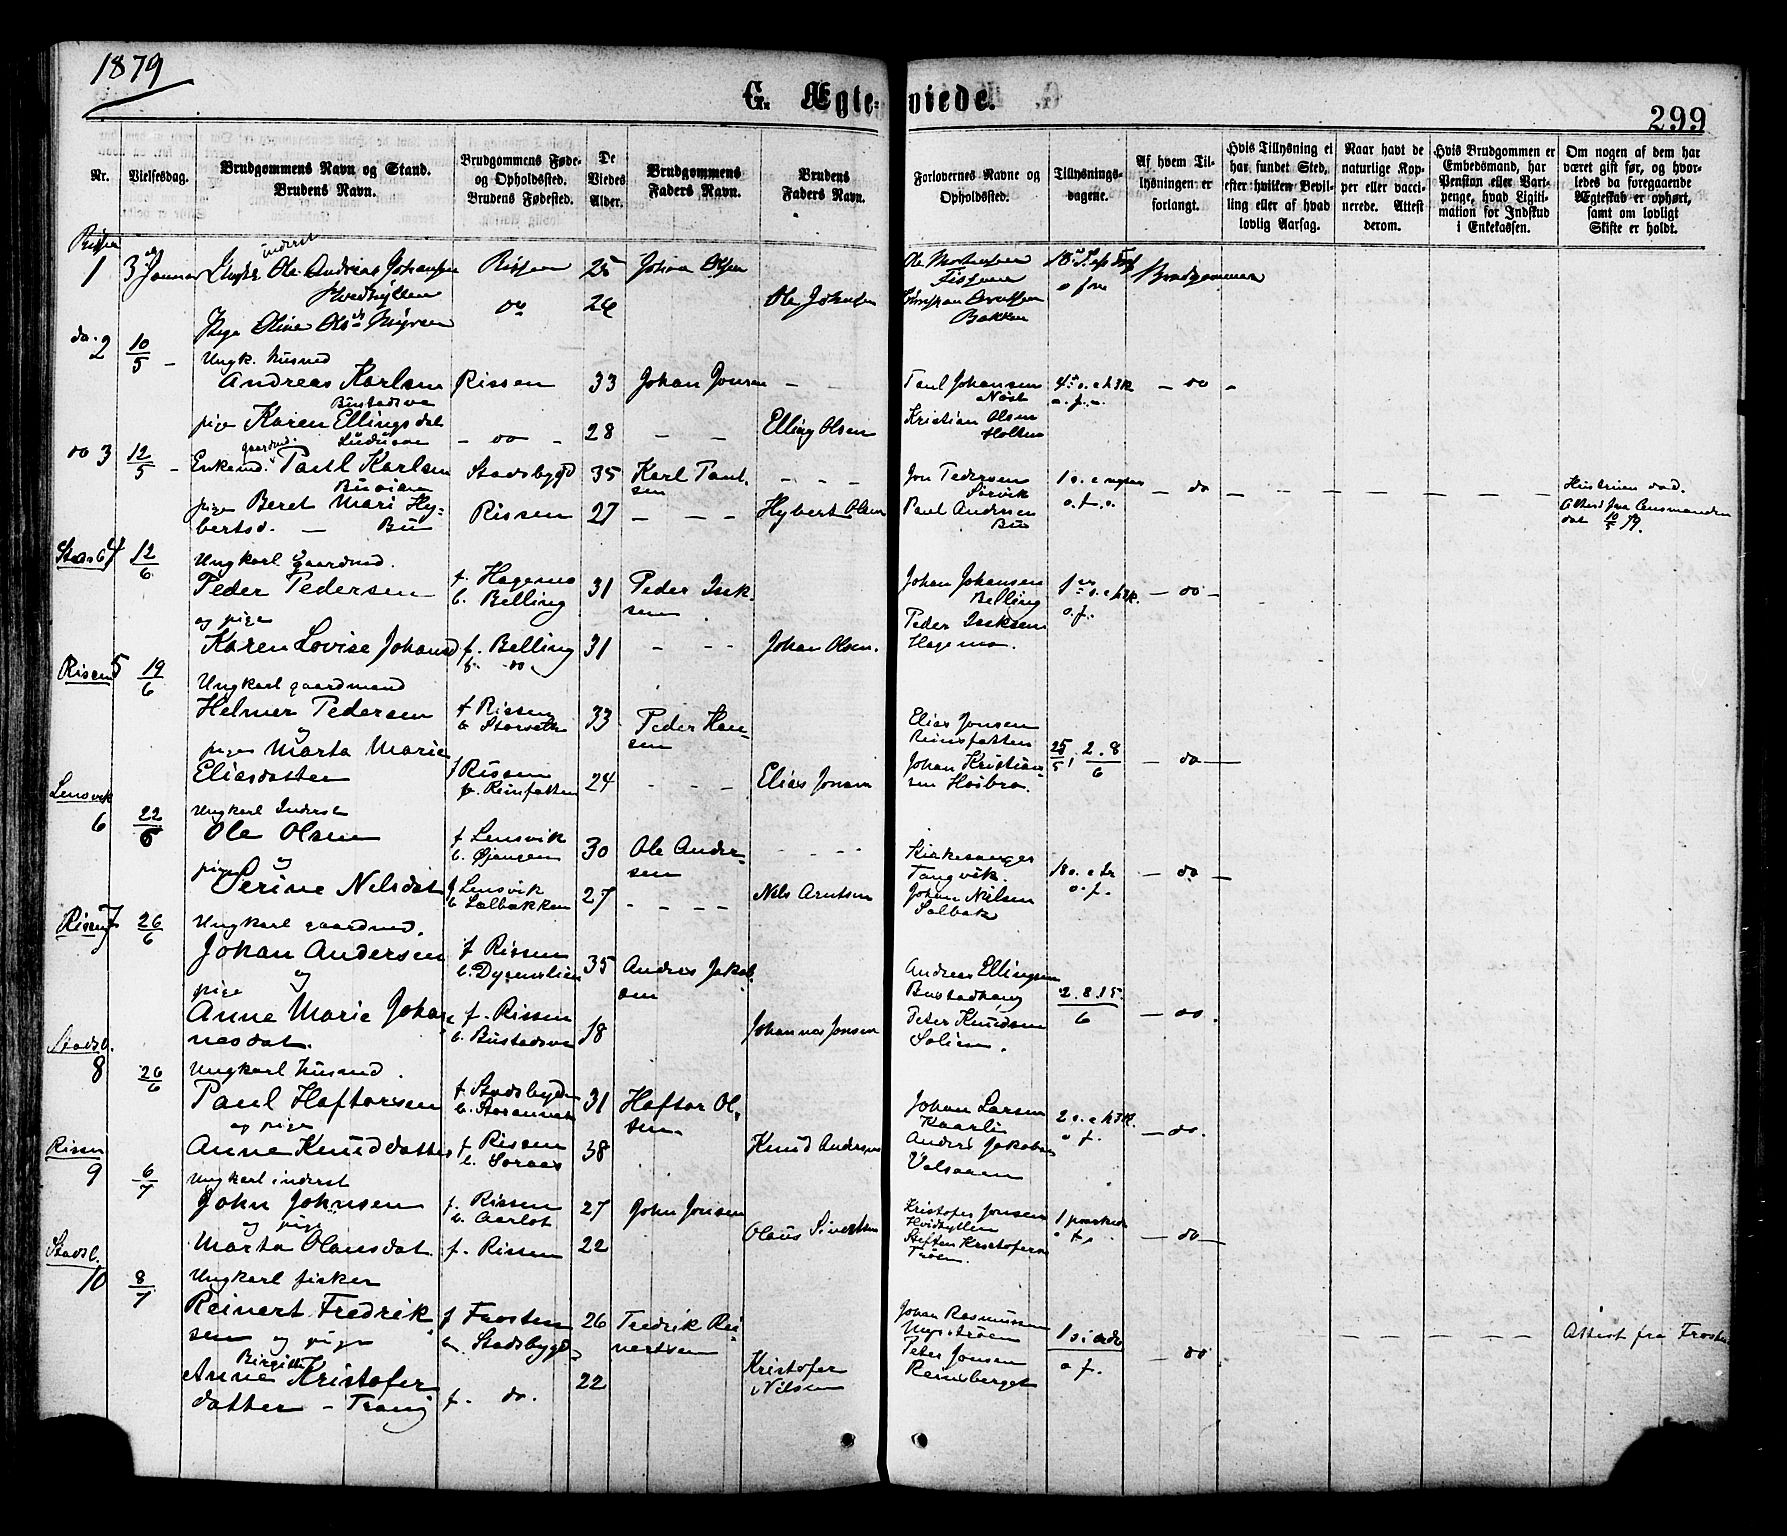 1879
G. Ægteviede.
299
Nr.
Vielsesdag.
Brudgommens Navn og Stand.
Brudens Navn.
Brudgommens Føde-
og Opholdssted.
Brudens Fødested.
De
Viedes
Alder.
Brudgommens
Faders Navn.
Brudens
Faders Navn.
Forlovernes Navne og
Opholdssted.
Tillysnings-
dagene.
Af hvem Til-
lysningen er
forlangt.
Hvis Tillysning ei
har fundet Sted,
efter hvilken Bevil-
ling eller af hvad
lovlig Aarsag.
Naar havt de
naturlige Kop-
per eller vacci-
nerede. Attest
derom.
Hvis Brudgommen er
Embedsmand, har været
Pension eller Vart-
penge, hvad Ligiti-
mation for Indskud
i Enkekassen.
Om nogen af dem har
været gift før, og hvor-
ledes da foregaaende
Ægteskab er ophørt,
samt om lovligt
Skifte er holdt.
Rissen
inderst
1 3 Januar Ole Andreas Johansen Rissen 25 Johan Olsen
Pige Oline Olsd. Myren do 26 Ole Johnsen
Brudgommen
Bakken
do. 2 10/5 Ungk. husmd
Andreas Karlsen Rissen 33 Johan Jonsen
Paul Johansen do
pige Karen Ellingsdat - do - 28 Elling Olsen
Kristian Olsen
Holten
do 3 12/5 Enkemd. gaardmd. Paul Karlsen Stadsbygd 35 Karl Paul-
sen
Jon Pedersen
Sørvik do Hustruen død.
pige Beret Mari Hy-
bertsd. - Bu Rissen 27 Hybert Olsen
Paul Andersen
Bu o. f. o.
10/5 79.
Stadsb. 4 12/6 Ungkarl Gaardmd.
Peder Pedersen f. Hagemo
b. Belling 31 Peder Isak-
sen
Johan Johansen
Belling do
og pige
Karen Lovise Johansd f. Belling
b. do 31 Johan Olsen.
Peder Isaksen
Hagemo. o. f.
Rissen 5 19/6 Ungkarl gaardmand
Helmer Pedersen f. Rissen 33 Peder Han-
sen
Elias Jonsen
Reinsfatten 25/5, 2. 8/6 do
og
pige Marta Marie
Eliasdatter f. Rissen
b. Reinsfatten 24 Elias Jonsen
Johan Kristian-
sen
Lensvik
6 22/6 Ungkarl Inderst
Ole Olsen f. Lensvik
b. Øjangen 30 Ole Ander-
sen
Kirkesanger
Tangvik. do
og
pige Serine Nilsdat f. Lensvik
b. Sælbakken 27 Nils Arntsen
Johan Nilsen
Solbak o. f.
Rissen 7 26/6 Ungkarl gaardmd.
Johan Andersen f. Rissen 35 Andreas Jakob-
sen
Andreas Ellingsen
Bustadhaug 2. 8. 15./6 do.
og
pige
Anne Marie Johan-
nesdat. f. Rissen
b. Bustadsve 18 Johannes Jonsen
Peter Knudsen
Solien.
Stadsb.
8 26/6 Ungkarl husmd.
Paul Haftorsen f. Stadsbygden 31 Haftor Ol-
sen.
Johan Larsen
Kaarli do.
og pige
Anne Knuddatter f. Rissen
b. Soraas 38 Knud Andersen
Anders Jakobsen
o. f.
Rissen
9 6/7 Ungkarl inderst
John Johnsen f. Rissen 27 John Jonsen
Kristofer Jonsen
Hvidhyllen do
og pige
Marta Olausdat. f. Rissen 22 Olaus Sivertsen
Steffen Kristofersen
Trøen. o. f.
Stadsb.
10 8/7 Ungkarl fisker
Reinert Fredrik-
sen og pige f. Frosten
b. Stadsbygd 26 Fredrik Rei-
nertsen
Johan Rasmussen
do Attest fra Frosten
Anne Birgitte Kristofer-
datter - Trang f. do. 22 Kristofer
Nilsen
Peter Jonsen
Reinsberget o. f.